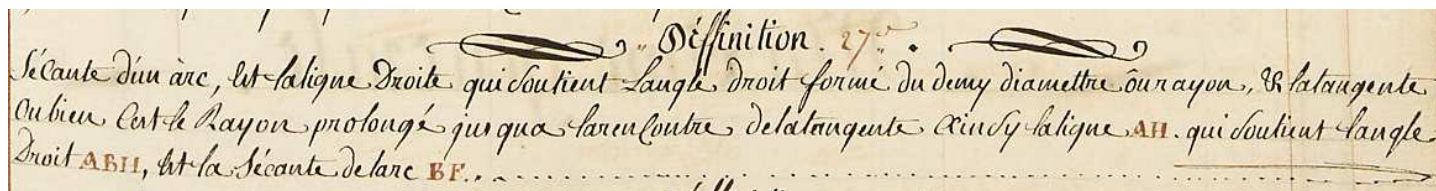 Déffinition. 27.e
Sécante d'un àrc, Est la ligne Droite qui soutient Langle droit formé du demy diamettre ôu rayon, & la tangente
Ou bien C'est le Rayon prolongé jusqua la renContre de la tangente Ainsy la ligne AH. qui soutient langle
Droit ABH, Est la Sécante de larc BF.